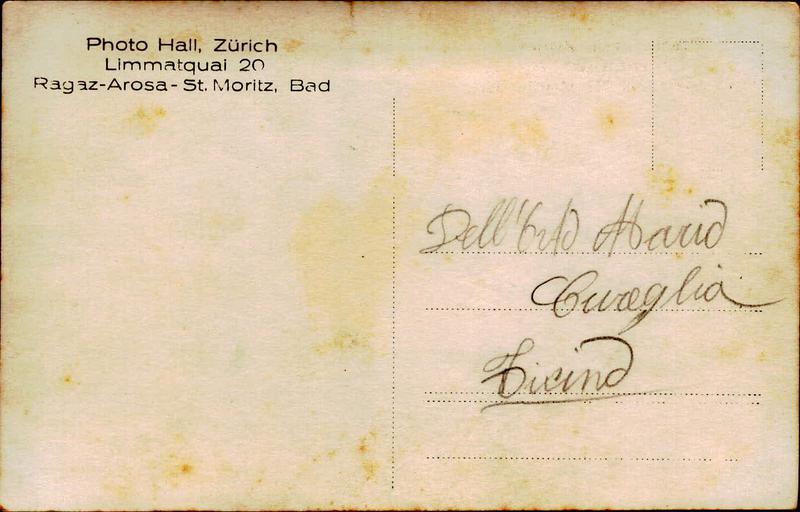 Photo Hall, Zürich
Limmatquai 20
Ragaz-Arosa-St. Moritz, Bad
Dell'Orto Mario
Cureglia
Ticino